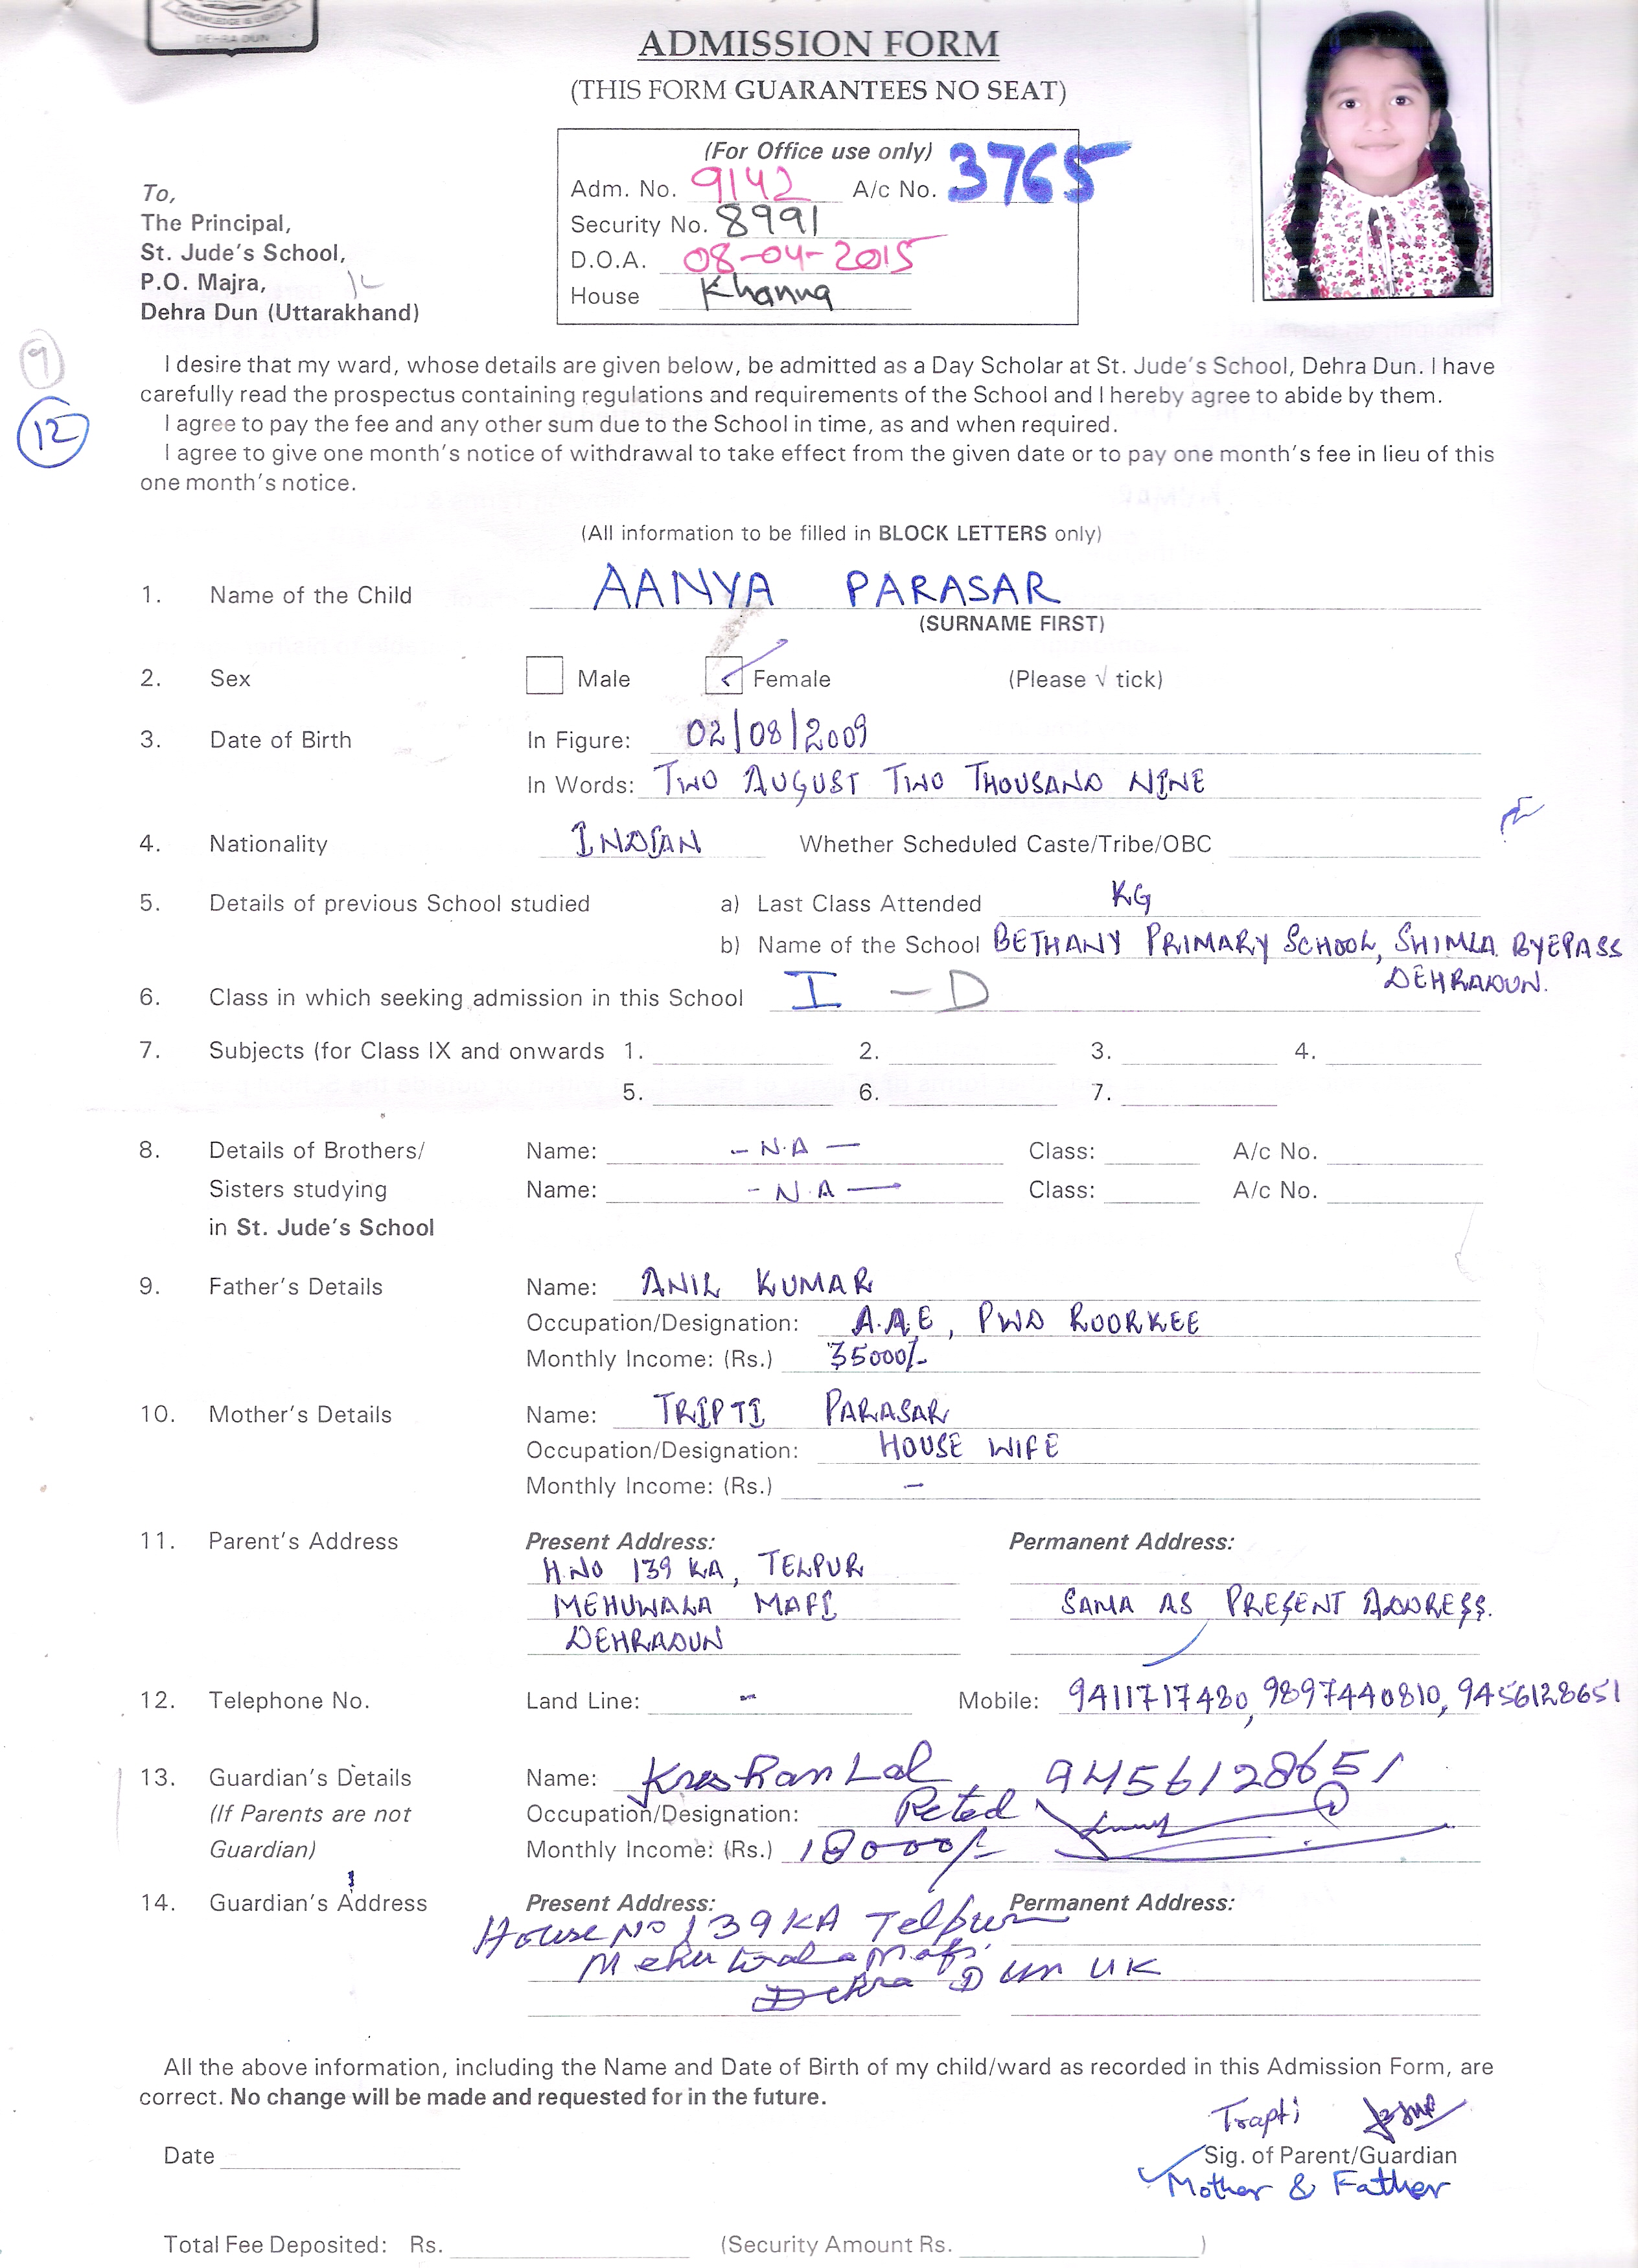 KNOWLEDGE IS LIGHT
DEHRA DUN
ADMISSION FORM
(THIS FORM GUARANTEES NO SEAT)
(For Office use only)
Adm. No. 9142 A/c No. 3765
Security No. 8991
D.O.A. 08-04-2015
House Khanna
To,
The Principal,
St. Jude's School,
P.O. Majra,
Dehra Dun (Uttarakhand)
9
12
I desire that my ward, whose details are given below, be admitted as a Day Scholar at St. Jude's School, Dehra Dun. I have
carefully read the prospectus containing regulations and requirements of the School and I hereby agree to abide by them.
I agree to pay the fee and any other sum due to the School in time, as and when required.
I agree to give one month's notice of withdrawal to take effect from the given date or to pay one month's fee in lieu of this
one month's notice.
(All information to be filled in BLOCK LETTERS only)
1. Name of the Child AANYA PARASAR
(SURNAME FIRST)
2. Sex Male Female (Please √ tick)
3. Date of Birth In Figure: 02/08/2009
In Words: TWO AUGUST TWO THOUSAND NINE
4. Nationality INDIAN Whether Scheduled Caste/Tribe/OBC
5. Details of previous School studied a) Last Class Attended KG
b) Name of the School BETHANY PRIMARY SCHOOL, SHIMLA BYEPASS
DEHRADUN.
6. Class in which seeking admission in this School I - D
7. Subjects (for Class IX and onwards 1. 2. 3. 4.
5. 6. 7.
8. Details of Brothers/ Name: - N.A - Class: A/c No.
Sisters studying Name: - N.A - Class: A/c No.
in St. Jude's School
9. Father's Details Name: ANIL KUMAR
Occupation/Designation: A.A.E, PWD ROORKEE
Monthly Income: (Rs.) 35000/-
10. Mother's Details Name: TRIPTI PARASAR
Occupation/Designation: HOUSE WIFE
Monthly Income: (Rs.) -
11. Parent's Address Present Address: Permanent Address:
H.NO 139 KA, TELPUR
MEHUWALA MAFI SAMA AS PRESENT ADDRESS.
DEHRADUN
12. Telephone No. Land Line: - Mobile: 9411717480, 9897440810, 9456128651
13. Guardian's Details Name: Krishan Lal 9456128651
(If Parents are not Occupation/Designation: Reted
Guardian) Monthly Income: (Rs.) 18000/-
14. Guardian's Address Present Address: Permanent Address:
House No 139 KA Telpur
Mehuwala Mafi
Dehra Dun UK
All the above information, including the Name and Date of Birth of my child/ward as recorded in this Admission Form, are
correct. No change will be made and requested for in the future.
Trapti
Date Sig. of Parent/Guardian
Mother & Father
Total Fee Deposited: Rs. (Security Amount Rs. )